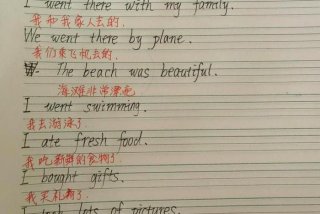 I went there with my family.
我和我家人去的.
We went there by plane.
我们乘飞机去的.
The beach was beautiful.
海滩非常漂亮
I went swimming.
我去游泳了.
I ate fresh food.
我吃新鲜的食物了.
I bought gifts.
我买礼物了.
I took lots of pictures.